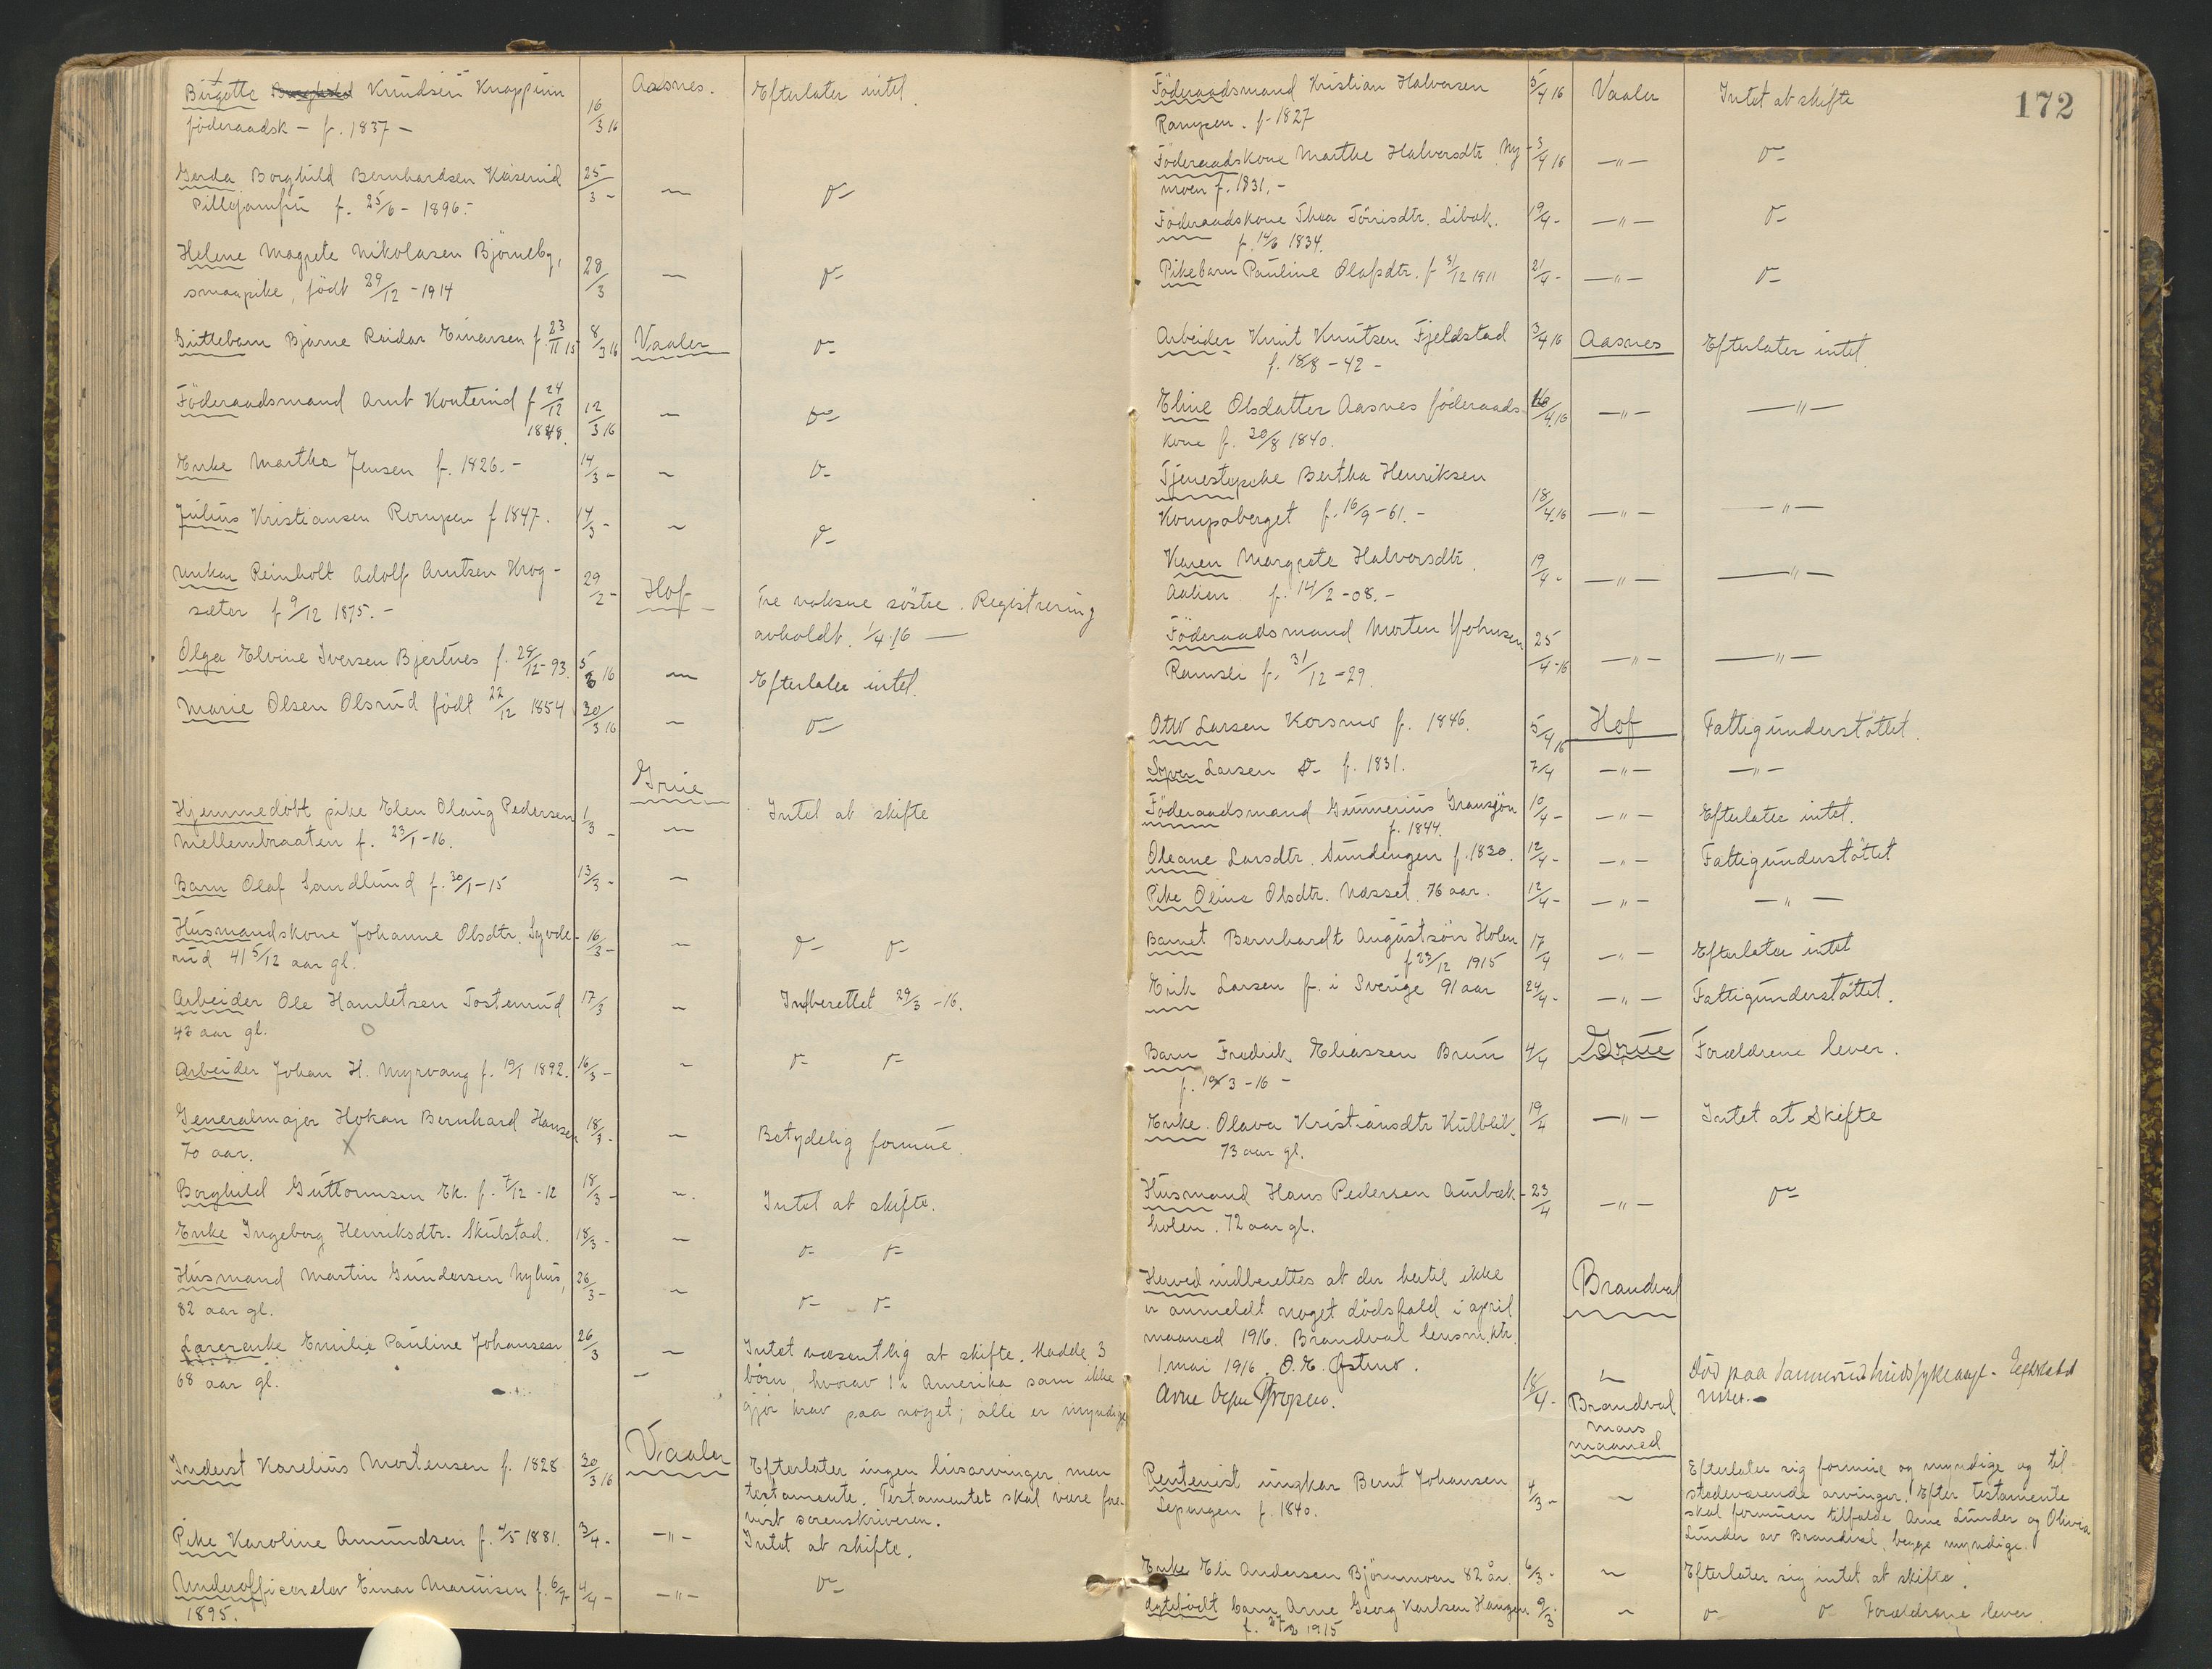 Birgitte Knudsen Knappum 16/3 16 Aasnes. Efterlater intet.
föderaadsk - f. 1837 -
Gerda Borghild Bernhardsen Kaiserud 25/3 - — D-
f. 25/6 - 1896.-
Helene Magrete Nikolasen Björneby, 28/3 — D-
smaapike, født 29/12 - 1914
Guttebarn Bjarne Reidar Einarsen f. 23/11 15 8/3 16 Vaaler D-
Föderaadsmand Arnt Konterud f 24/12 12/3 16 — D-
1848.
Enke Martha Jensen f. 1826. - 14/3 - — D-
Julius Kristiansen Rompen f 1847. 14/3 - — D-
Unkar Reinholt Adolf Arntzen Krog- 29/2 - Hof Tre voksne söstre. Registrering
sæter f 9/12 1875. - avholdt. 1/4.16 —
Olga Elvine Iversen Bjertnes f. 29/12-93. 5/3 16 — Efterlater intet.
Marie Olsen Olsrud født 22/12 1854 30/3 16 — D-
Grue
Hjemmedöbt pike Elen Olaug Pedersen 1/3 - — Intet at skifte
Mellembraaten f. 23/1-16.
Barn Olaf Sandlund f. 30/1-15 13/3 - —
Husmandskone Johanne Olsdtr. Syvde- 16/3 - — D- D-
rud 41 5/12 aar gl.
Arbeider Ole Hamletsen Tosterud 17/3 — Indberettet 29/3 -16.
43 aar gl.
Arbeider Johan H. Myrvang f. 19/1 1892. 16/3 - — D- D-
Generalmajor Hokan Bernhard Hansen 18/3 - — Betydelig formue.
70 aar. X
Borghild Guttormsen Ek. f. 7/12 -12 18/3 - — Intet at skifte.
Enke Ingeborg Henriksdtr. Skulstad. 18/3 - — D- D-
Husmand Martin Gundersen Nyhus, 26/3 - — D- D-
82 aar gl.
Lærerenke Emilie Pauline Johansen 26/3 — Intet væsentlig at skifte. Hadde 3
68 aar gl. börn, hvorav 1 i Amerika som ikke
gjör krav paa noget; alle er myndige
Inderst Karelius Mortensen f. 1828 30/3 16 Vaaler Efterlater ingen livsarvinger men
testamente. Testamentet skal være fore-
vist sorenskriveren.
Pike Karoline Amundsen f. 4/5 1881. 3/4 - —"— Intet at skifte.
Underofficerelev Einar f. 6/7- 4/4 - —"— D-
1895.
172
Föderaadsmand Kristian Halvorsen 5/4 16 Vaaler Intet at skifte
Rompen. f. 1827
Föderaadskone Marthe Halvorsdtr. Ny- 3/4 16 —"— D-
moen f. 1831. -
Föderaadskone Thea Tönisdtr. Libak. 19/4 - —"— D-
f. 14/6 1834.
Pikebarn Pauline Olafsdtr. f 31/12 1911 21/4 - —"— D-
Arbeider Knut Knutsen Fjeldstad 3/4 16 Aasnes Efterlater intet.
f. 18/8 - 42 -
Eline Olsdatter Aasnes föderaads- 16/4 16 —"— —"—
kone f. 30/8 1840.
Tjenestepike Bertha Henriksen
Kompsberget f. 16/9 -61. - 18/4 16 —"— —"—
Karen Margrete Halvorsdtr. 19/4 - —"— —"—
f. 14/2 -08. -
Föderaadsmand Morten Johnsen 25/4 -16 —"— —"—
Ramsli f. 31/12 -29.
Otto Larsen Korsmo f. 1846. 5/4 16 Hof Fattigunderstöttet.
Syver Larsen D- f. 1831. 7/4 —"— —"—
Föderaadsmand Gunnerius Gransjön 10/4 - —"— Efterlater intet.
f. 1844.
Oleane Larsdtr. Sundengen f. 1830. 12/4 - —"— Fattigunderstöttet
Pike Oline Olsdtr. Næsset 76 aar. 12/4 - —"— —"—
Barnet Bernhardt Augustsön Holen 17/4 —"— Efterlater intet
f 23/12 1915
Erik Larsen f. i Sverige 91 aar 24/4 - —"— Fattigunderstöttet.
Barn Fredrik Eliassen Bruu 4/4 Grue Forældrene lever.
f. 19/3 -16 -
Enke Olava Kristiansdtr Kulblik. 19/4 —"— Intet at Skifte
73 aar gl.
Husmand Hans Pedersen Aurbæk- 23/4 —"— D-
holen. 72 aar gl.
Herved indberettes at der hertil ikke Brandval
er anmeldt noget dödsfald i april
maaned 1916. Brandval lensm.ktr.
1 mai 1916. O. E. Østmo.
Arne 18/4 - —
Brandval
mars
maaned
Rentenist ungkar Bernt Johansen 4/3 - — Efterlater sig formue og myndige og til
Sepangen f. 1840. stedeværende arvinger. Efter testamente
skal formuen tilfalde Arne Lunder og Olivia
Lunder av Brandval, begge myndige.
Enke Eli Andersen Björnmoen 82 år. 6/3 - — Efterlater sig intet at skifte.
Ægtefödt barn Arne Georg Karlsen Haugen 9/3 - — D- D- Forældrene lever.
f. 27/2 1915